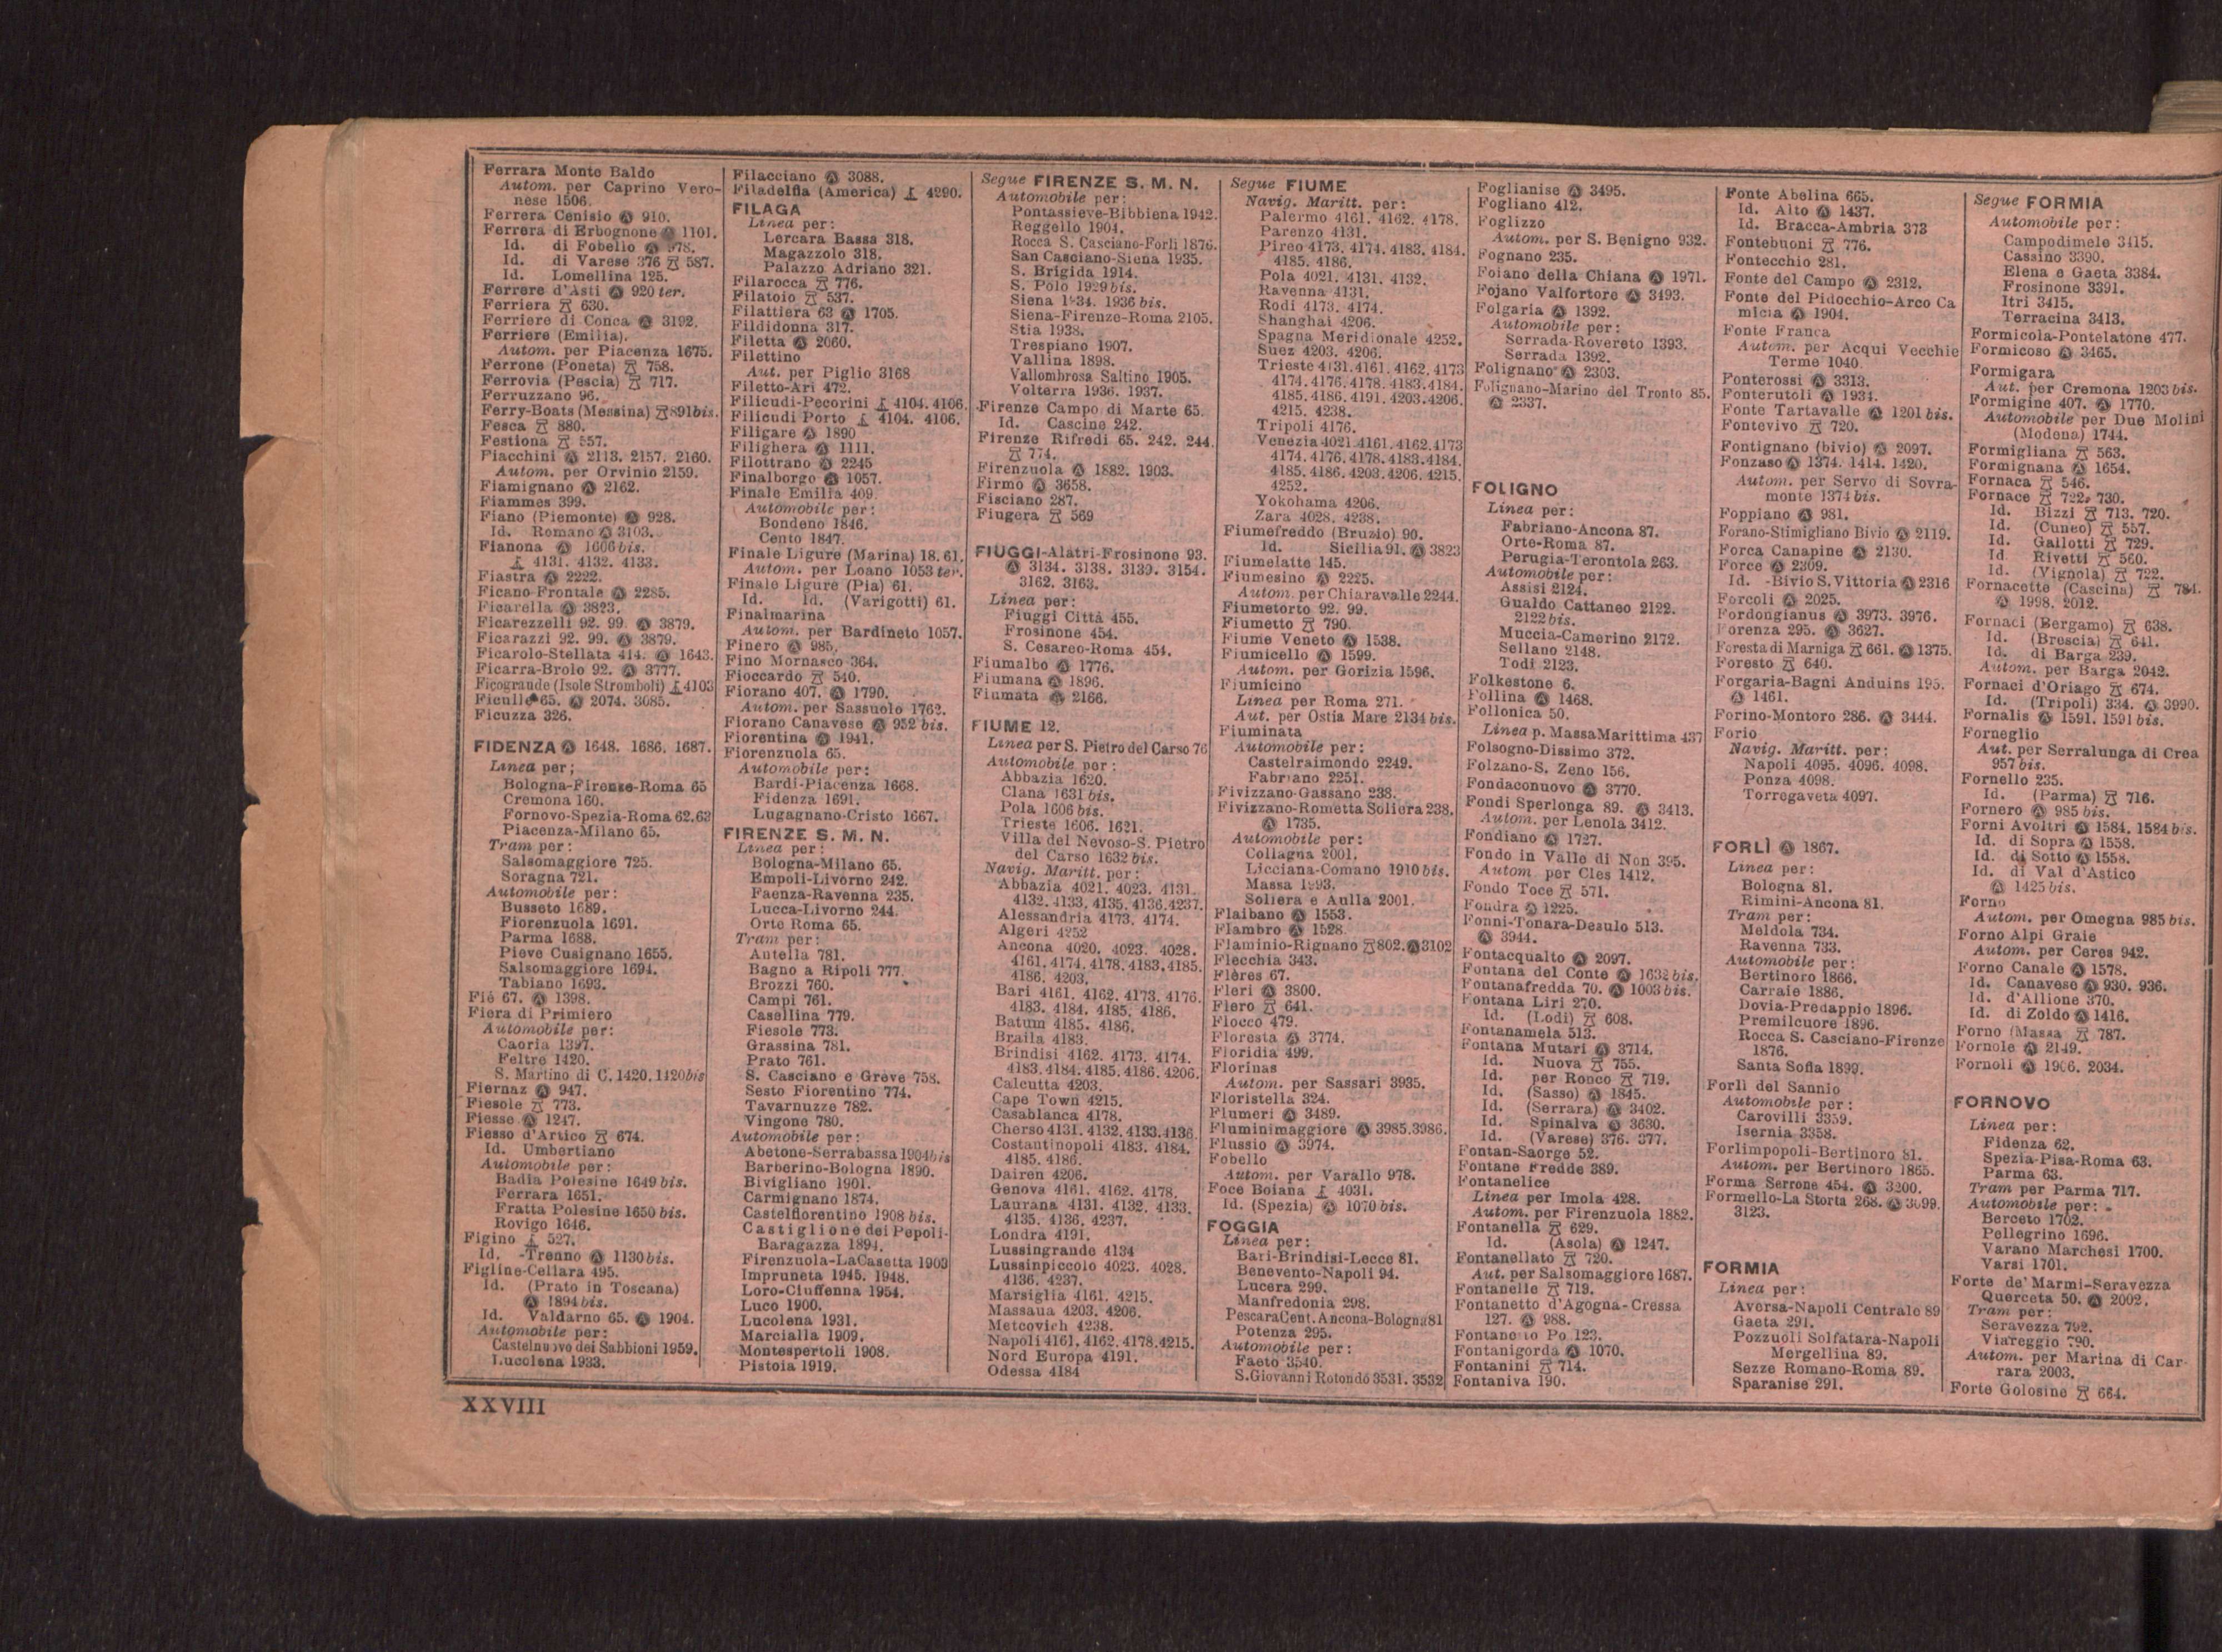 Ferrara Monte Baldo
Autom. per Caprino Vero-
nese 1506.
Ferrera Cenisio Ⓐ 910.
Ferrera di Erbognone Ⓐ 1101.
Id. di Fobello Ⓐ 978.
Id. di Varese 376 587.
Id. Lomellina 125.
Ferrere d'Asti Ⓐ 920 ter.
Ferriera 630.
Ferriere di Conca Ⓐ 3192.
Ferriere (Emilia).
Autom. per Piacenza 1675.
Ferrone (Poneta) 758.
Ferrovia (Pescia) 717.
Ferruzzano 96.
Ferry-Boats (Messina) 891 bis.
Fesca 880.
Festiona 557.
Fiacchini Ⓐ 2113. 2157. 2160.
Autom. per Orvinio 2159.
Fiamignano Ⓐ 2162.
Fiammes 399.
Fiano (Piemonte) Ⓐ 928.
Id. Romano Ⓐ 3103.
Fianona Ⓐ 1606 bis.
4131. 4132. 4133.
Fiastra Ⓐ 2222.
Ficano Frontale Ⓐ 2285.
Ficarella Ⓐ 3823.
Ficarezzelli 92. 99. Ⓐ 3879.
Ficarazzi 92. 99. Ⓐ 3879.
Ficarolo-Stellata 414. Ⓐ 1643.
Ficarra-Brolo 92. Ⓐ 3777.
Ficogrande (Isole Stromboli) 4103
Ficulle 65. Ⓐ 2074. 3085.
Ficuzza 326.
FIDENZA Ⓐ 1648. 1686. 1687.
Linea per;
Bologna-Firenze-Roma 65
Cremona 160.
Fornovo-Spezia-Roma 62.63
Piacenza-Milano 65.
Tram per:
Salsomaggiore 725.
Soragna 721.
Automobile per:
Busseto 1689.
Fiorenzuola 1691.
Parma 1688.
Pieve Cusignano 1655.
Salsomaggiore 1694.
Tabiano 1693.
Fiè 67. Ⓐ 1398.
Fiera di Primiero
Automobile per:
Caoria 1397.
Feltre 1420.
S. Martino di C. 1420. 1420 bis
Fiernaz Ⓐ 947.
Fiesole 773.
Fiesse Ⓐ 1247.
Fiesso d'Artico 674.
Id. Umbertiano
Automobile per:
Badia Polesine 1649 bis.
Ferrara 1651.
Fratta Polesine 1650 bis.
Rovigo 1646.
Figino 527.
Id. -Trenno Ⓐ 1130 bis.
Figline-Cellara 495.
Id. (Prato in Toscana)
Ⓐ 1894 bis.
Id. Valdarno 65. Ⓐ 1904.
Automobile per:
Castelnuovo dei Sabbioni 1959.
Lucolena 1933.
Filacciano Ⓐ 3088.
Filadelfia (America) 4290.
FILAGA
Linea per:
Lercara Bassa 318.
Magazzolo 318.
Palazzo Adriano 321.
Filarocca 776.
Filatoio 537.
Filattiera 63 Ⓐ 1705.
Fildidonna 317.
Filetta Ⓐ 2060.
Filettino
Aut. per Piglio 3168
Filetto-Ari 472.
Filicudi-Pecorini 4104. 4106.
Filicudi Porto 4104. 4106.
Filigare Ⓐ 1890
Filighera Ⓐ 1111.
Filottrano Ⓐ 2245
Finalborgo Ⓐ 1057.
Finale Emilia 409.
Automobile per:
Bondeno 1846.
Cento 1847.
Finale Ligure (Marina) 18. 61.
Autom. per Loano 1053 ter.
Finale Ligure (Pia) 61.
Id. Id. (Varigotti) 61.
Finalmarina
Autom. per Bardineto 1057.
Finero Ⓐ 985.
Fino Mornasco 364.
Fioccardo 540.
Fiorano 407. Ⓐ 1790.
Autom. per Sassuolo 1762.
Fiorano Canavese Ⓐ 952 bis.
Fiorentina Ⓐ 1941.
Fiorenzuola 65.
Automobile per:
Bardi-Piacenza 1668.
Fidenza 1691.
Lugagnano-Cristo 1667.
FIRENZE S. M. N.
Linea per:
Bologna-Milano 65.
Empoli-Livorno 242.
Faenza-Ravenna 235.
Lucca-Livorno 244.
Orte Roma 65.
Tram per:
Antella 781.
Bagno a Ripoli 777.
Brozzi 760.
Campi 761.
Casellina 779.
Fiesole 773.
Grassina 781.
Prato 761.
S. Casciano e Greve 758.
Sesto Fiorentino 774.
Tavarnuzze 782.
Vingone 780.
Automobile per:
Abetone-Serrabassa 1904 bis
Barberino-Bologna 1890.
Bivigliano 1901.
Carmignano 1874.
Castelfiorentino 1908 bis.
Castiglione dei Pepoli-
Baragazza 1894.
Firenzuola-La Casetta 1903
Impruneta 1945. 1948.
Loro-Ciuffenna 1954.
Luco 1900.
Lucolena 1931.
Marcialla 1909.
Montespertoli 1908.
Pistoia 1919.
Segue FIRENZE S. M. N.
Automobile per:
Pontassieve-Bibbiena 1942.
Reggello 1904.
Rocca S. Casciano-Forlì 1876.
San Casciano-Siena 1935.
S. Brigida 1914.
S. Polo 1929 bis.
Siena 1934. 1936 bis.
Siena-Firenze-Roma 2105.
Stia 1938.
Trespiano 1907.
Vallina 1898.
Vallombrosa Saltino 1905.
Volterra 1936. 1937.
Firenze Campo di Marte 65.
Id. Cascine 242.
Firenze Rifredi 65. 242. 244.
774.
Firenzuola Ⓐ 1882. 1903.
Firmo Ⓐ 3658.
Fisciano 287.
Fiugera 569
FIUGGI-Alatri-Frosinone 93.
Ⓐ 3134. 3138. 3139. 3154.
3162. 3163.
Linea per:
Fiuggi Città 455.
Frosinone 454.
S. Cesareo-Roma 454.
Fiumalbo Ⓐ 1776.
Fiumana Ⓐ 1896.
Fiumata Ⓐ 2166.
FIUME 12.
Linea per S. Pietro del Carso 76
Automobile per:
Abbazia 1620.
Clana 1631 bis.
Pola 1606 bis.
Trieste 1606. 1621.
Villa del Nevoso-S. Pietro
del Carso 1632 bis.
Navig. Maritt. per:
Abbazia 4021. 4023. 4131.
4132. 4133. 4135. 4136. 4237.
Alessandria 4173. 4174.
Algeri 4252
Ancona 4020. 4023. 4028.
4161. 4174. 4178. 4183. 4185.
4186. 4203.
Bari 4161. 4162. 4173. 4176.
4183. 4184. 4185. 4186.
Batum 4185. 4186.
Braila 4183.
Brindisi 4162. 4173. 4174.
4183. 4184. 4185. 4186. 4206.
Calcutta 4203.
Cape Town 4215.
Casablanca 4178.
Cherso 4131. 4132. 4133. 4136.
Costantinopoli 4183. 4184.
4185. 4186.
Dairen 4206.
Genova 4161. 4162. 4178.
Laurana 4131. 4132. 4133.
4135. 4136. 4237.
Londra 4191.
Lussingrande 4134
Lussinpiccolo 4023. 4028.
4136. 4237.
Marsiglia 4161. 4215.
Massaua 4203. 4206.
Metcovich 4238.
Napoli 4161. 4162. 4178. 4215.
Nord Europa 4191.
Odessa 4184
Segue FIUME
Navig. Maritt. per:
Palermo 4161. 4162. 4178.
Parenzo 4131.
Pireo 4173. 4174. 4183. 4184.
4185. 4186.
Pola 4021. 4131. 4132.
Ravenna 4131.
Rodi 4173. 4174.
Shanghai 4206.
Spagna Meridionale 4252.
Suez 4203. 4206.
Trieste 4131. 4161. 4162. 4173
4174. 4176. 4178. 4183. 4184.
4185. 4186. 4191. 4203. 4206.
4215. 4238.
Tripoli 4176.
Venezia 4021. 4161. 4162. 4173
4174. 4176. 4178. 4183. 4184.
4185. 4186. 4203. 4206. 4215.
4252.
Yokohama 4206.
Zara 4028. 4238.
Fiumefreddo (Bruzio) 90.
Id. Sicilia 91. Ⓐ 3823
Fiumelatte 145.
Fiumesino Ⓐ 2225.
Autom. per Chiaravalle 2244.
Fiumetorto 92. 99.
Fiumetto 790.
Fiume Veneto Ⓐ 1538.
Fiumicello Ⓐ 1599.
Autom. per Gorizia 1596.
Fiumicino
Linea per Roma 271.
Aut. per Ostia Mare 2134 bis.
Fiuminata
Automobile per:
Castelraimondo 2249.
Fabriano 2251.
Fivizzano-Gassano 238.
Fivizzano-Rometta Soliera 238.
Ⓐ 1735.
Automobile per:
Collagna 2001.
Licciana-Comano 1910 bis.
Massa 1993.
Soliera e Aulla 2001.
Flaibano Ⓐ 1553.
Flambro Ⓐ 1528
Flaminio-Rignano 802. Ⓐ 3102
Flecchia 343.
Flères 67.
Fleri Ⓐ 3800.
Flero 641.
Flocco 479.
Floresta Ⓐ 3774.
Floridia 499.
Florinas
Autom. per Sassari 3935.
Floristella 324.
Flumeri Ⓐ 3489.
Fluminimaggiore Ⓐ 3985. 3986.
Flussio Ⓐ 3974.
Fobello
Autom. per Varallo 978.
Foce Boiana 4031.
Id. (Spezia) Ⓐ 1070 bis.
FOGGIA
Linea per:
Bari-Brindisi-Lecce 81.
Benevento-Napoli 94.
Lucera 299.
Manfredonia 298.
Pescara Cent. Ancona-Bologna 81
Potenza 295.
Automobile per:
Faeto 3540.
S. Giovanni Rotondo 3531. 3532
Foglianise Ⓐ 3495.
Fogliano 412.
Foglizzo
Autom. per S. Benigno 932.
Fognano 235.
Foiano della Chiana Ⓐ 1971.
Fojano Valfortore Ⓐ 3493.
Folgaria Ⓐ 1392.
Automobile per:
Serrada-Rovereto 1393.
Serrada 1392.
Folignano Ⓐ 2303.
Folignano-Marino del Tronto 85.
Ⓐ 2337.
FOLIGNO
Linea per:
Fabriano-Ancona 87.
Orte-Roma 87.
Perugia-Terontola 263.
Automobile per:
Assisi 2124.
Gualdo Cattaneo 2122.
2122 bis.
Muccia-Camerino 2172.
Sellano 2148.
Todi 2123.
Folkestone 6.
Follina Ⓐ 1468.
Follonica 50.
Linea p. Massa Marittima 437
Folsogno-Dissimo 372.
Folzano-S. Zeno 156.
Fondaconuovo Ⓐ 3770.
Fondi Sperlonga 89. Ⓐ 3413.
Autom. per Lenola 3412.
Fondiano Ⓐ 1727.
Fondo in Valle di Non 395.
Autom per Cles 1412.
Fondo Toce 571.
Fondra Ⓐ 1225.
Fonni-Tonara-Desulo 513.
Ⓐ 3944.
Fontacqualto Ⓐ 2097.
Fontana del Conte Ⓐ 1632 bis.
Fontanafredda 70. Ⓐ 1003 bis.
Fontana Liri 270.
Id. (Lodi) 608.
Fontanamela 513.
Fontana Mutari Ⓐ 3714.
Id. Nuova 755.
Id. per Ronco 719.
Id. (Sasso) Ⓐ 1845.
Id. (Serrara) Ⓐ 3402.
Id. Spinalva Ⓐ 3630.
Id. (Varese) 376. 377.
Fontan-Saorge 52.
Fontane Fredde 389.
Fontanelice
Linea per Imola 428.
Autom. per Firenzuola 1882.
Fontanella 629.
Id. (Asola) Ⓐ 1247.
Fontanellato 720.
Aut. per Salsomaggiore 1687.
Fontanelle 719.
Fontanetto d'Agogna-Cressa
127. Ⓐ 988.
Fontanetto Po 123.
Fontanigorda Ⓐ 1070.
Fontanini 714.
Fontaniva 190.
Fonte Abelina 665.
Id. Alto Ⓐ 1437.
Id. Bracca-Ambria 373
Fontebuoni 776.
Fontecchio 281.
Fonte del Campo Ⓐ 2312.
Fonte del Pidocchio-Arco Ca
micia Ⓐ 1904.
Fonte Franca
Autom. per Acqui Vecchie
Terme 1040.
Fonterossi Ⓐ 3313.
Fonterutoli Ⓐ 1934.
Fonte Tartavalle Ⓐ 1201 bis.
Fontevivo 720.
Fontignano (bivio) Ⓐ 2097.
Fonzaso Ⓐ 1374. 1414. 1420.
Autom. per Servo di Sovra-
monte 1374 bis.
Foppiano Ⓐ 981.
Forano-Stimigliano Bivio Ⓐ 2119.
Forca Canapine Ⓐ 2130.
Force Ⓐ 2309.
Id. -Bivio S. Vittoria Ⓐ 2316
Forcoli Ⓐ 2025.
Fordongianus Ⓐ 3973. 3976.
Forenza 295. Ⓐ 3627.
Foresta di Marniga 661. Ⓐ 1375.
Foresto 640.
Forgaria-Bagni Anduins 195.
Ⓐ 1461.
Forino-Montoro 286. Ⓐ 3444.
Forio
Navig. Maritt. per:
Napoli 4095. 4096. 4098.
Ponza 4098.
Torregaveta 4097.
FORLÌ Ⓐ 1867.
Linea per:
Bologna 81.
Rimini-Ancona 81.
Tram per:
Meldola 734.
Ravenna 733.
Automobile per:
Bertinoro 1866.
Carraie 1886.
Dovia-Predappio 1896.
Premilcuore 1896.
Rocca S. Casciano-Firenze
1876.
Santa Sofia 1899.
Forlì del Sannio
Automobile per:
Carovilli 3359.
Isernia 3358.
Forlimpopoli-Bertinoro 81.
Autom. per Bertinoro 1865.
Forma Serrone 454. Ⓐ 3200.
Formello-La Storta 268. Ⓐ 3099.
3123.
FORMIA
Linea per:
Aversa-Napoli Centrale 89
Gaeta 291.
Pozzuoli Solfatara-Napoli
Mergellina 89.
Sezze Romano-Roma 89.
Sparanise 291.
Segue FORMIA
Automobile per:
Campodimele 3415.
Cassino 3390.
Elena e Gaeta 3384.
Frosinone 3391.
Itri 3415.
Terracina 3413.
Formicola-Pontelatone 477.
Formicoso Ⓐ 3465.
Formigara
Aut. per Cremona 1203 bis.
Formigine 407. Ⓐ 1770.
Automobile per Due Molini
(Modena) 1744.
Formigliana 563.
Formignana Ⓐ 1654.
Fornaca 546.
Fornace 722. 730.
Id. Bizzi 713. 720.
Id. (Cuneo) 557.
Id. Gallotti 729.
Id. Rivetti 560.
Id. (Vignola) 722.
Fornacette (Cascina) 784.
Ⓐ 1998. 2012.
Fornaci (Bergamo) 638.
Id. (Brescia) 641.
Id. di Barga 239.
Autom. per Barga 2042.
Fornaci d'Oriago 674.
Id. (Tripoli) 334. Ⓐ 3990.
Fornalis Ⓐ 1591. 1591 bis.
Forneglio
Aut. per Serralunga di Crea
957 bis.
Fornello 235.
Id. (Parma) 716.
Fornero Ⓐ 985 bis.
Forni Avoltri Ⓐ 1584. 1584 bis.
Id. di Sopra Ⓐ 1558.
Id. di Sotto Ⓐ 1558.
Id. di Val d'Astico
Ⓐ 1425 bis.
Forno
Autom. per Omegna 985 bis.
Forno Alpi Graie
Autom. per Ceres 942.
Forno Canale Ⓐ 1578.
Id. Canavese Ⓐ 930. 936.
Id. d'Allione 370.
Id. di Zoldo Ⓐ 1416.
Forno (Massa 787.
Fornole Ⓐ 2149.
Fornoli Ⓐ 1906. 2034.
FORNOVO
Linea per:
Fidenza 62.
Spezia-Pisa-Roma 63.
Parma 63.
Tram per Parma 717.
Automobile per:
Berceto 1702.
Pellegrino 1696.
Varano Marchesi 1700.
Varsi 1701.
Forte de' Marmi-Seravezza
Querceta 50. Ⓐ 2002.
Tram per:
Seravezza 792.
Viareggio 790.
Autom. per Marina di Car-
rara 2003.
Forte Golosine 664.
XXVIII